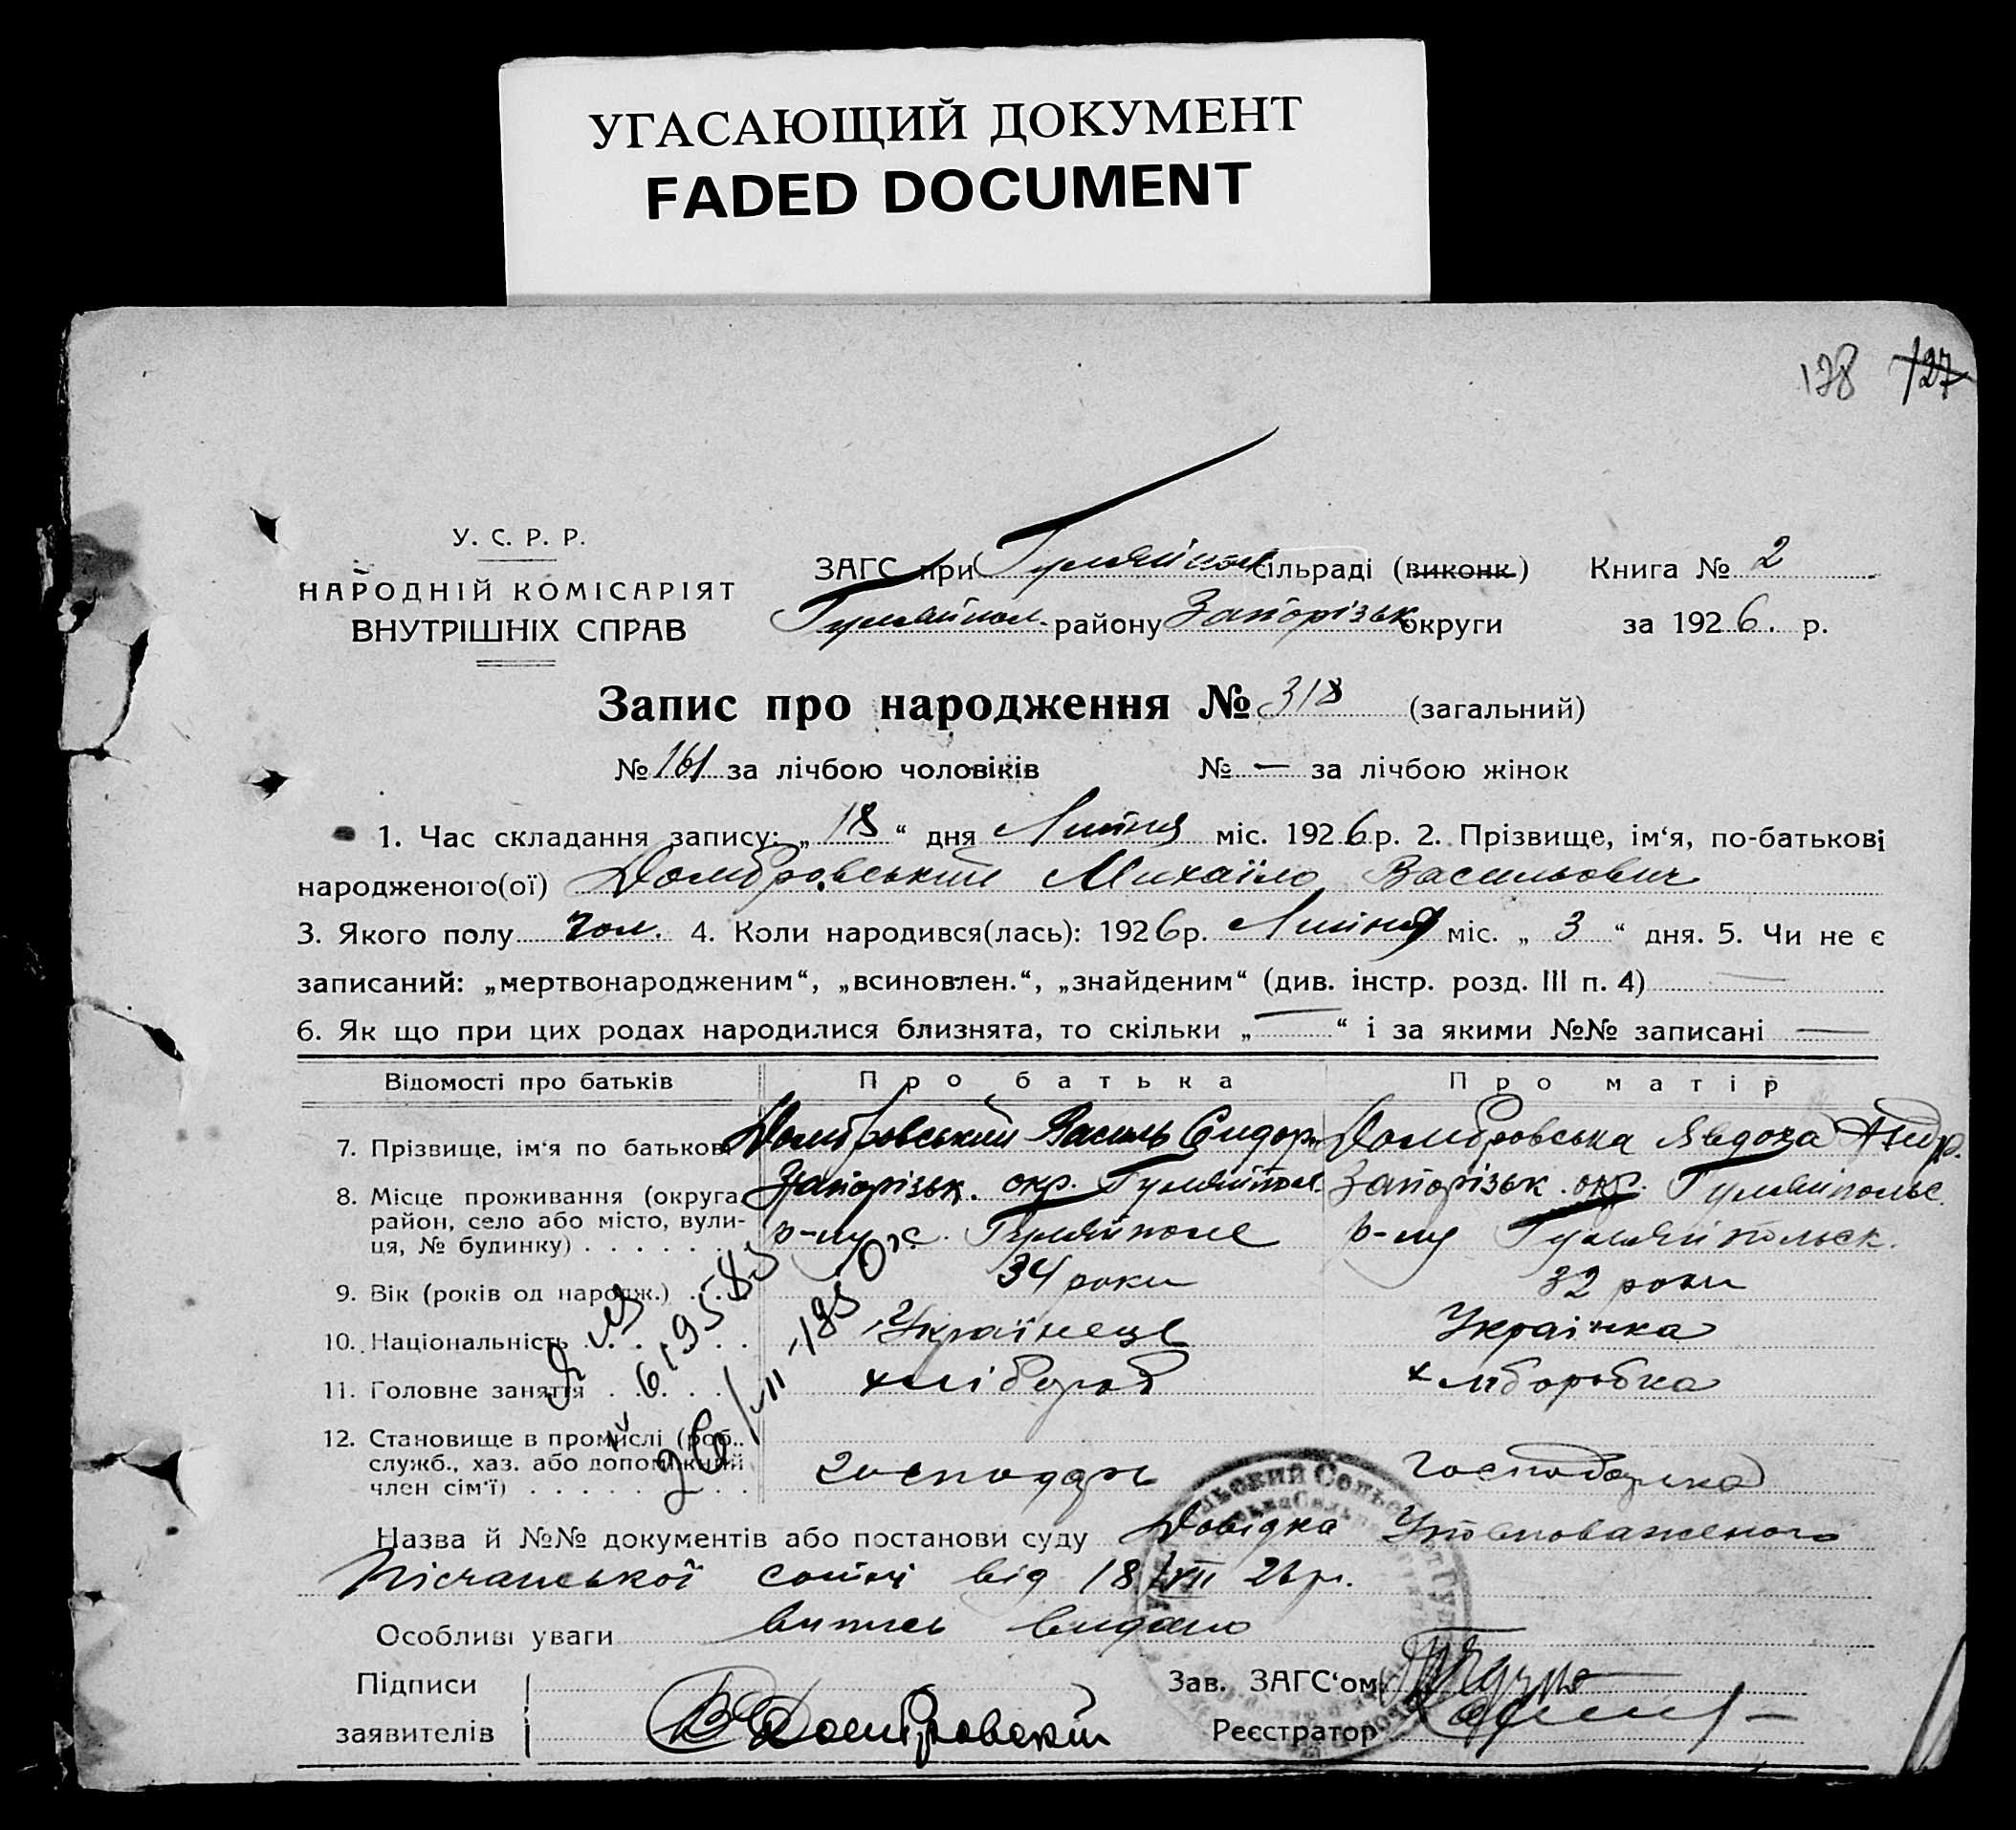 УГАСАЮЩИЙ ДОКУМЕНТ
FADED DOCUMENT
128 127
У. С. Р. Р.
НАРОДНІЙ КОМІСАРІЯТ
ВНУТРІШНІХ СПРАВ
ЗАГС при Гуляйпол сільраді (виконк) Книга № 2
Гуляйпол. району Запорізьк округи за 1926. р.
Запис про народження № 318 (загальний)
№ 161 за лічбою чоловіків № — за лічбою жінок
1. Час складання запису: „18“ дня Липня міс. 1926 р. 2. Прізвище, ім‘я, по-батькові
народженого(ої) Домбровський Михайло Васильович
3. Якого полу чол. 4. Коли народився(лась): 1926 р. Липня міс. „3“ дня. 5. Чи не є
записаний: „мертвонародженим“, „всиновлен.“, „знайденим“ (див. інстр. розд. III п. 4) —
6. Як що при цих родах народилися близнята, то скільки „—“ і за якими №№ записані —
Відомості про батьків Про батька Про матір
7. Прізвище, ім‘я по батькові Домбровський Василь Сидор. Домбровська Явдоха Андр.
8. Місце проживання (округа, район, село або місто, вулиця, № будинку) . . . . . .
Запорізьк. окр. Гуляйпол. Запорізьк. окр. Гуляйпольс.
р-ну с. Гуляйполе р-ну Гуляйпольск.
9. Вік (років од народж.) . . . 34 роки 32 роки
10. Національність . . . . . Українець Українка
11. Головне заняття . . . . . хлібороб хліборобка
12. Становище в промислі (роб., служб., хаз. або допоміжний член сім‘ї) . . . . . . . . господарь господарка
Назва й №№ документів або постанови суду Довідка Уповноваженого
Пісчанської сотні від 18/VII 26 р.
Особливі уваги випись видано
Підписи
заявителів В Домбровский
Зав. ЗАГС‘ом
Реєстратор